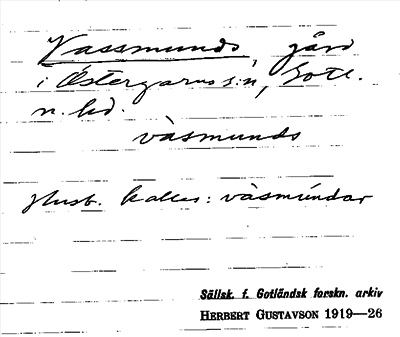 Vassmunds, gård
i Östergarns s:n, Gotl.
n. hd.
vàsmunds
Husb. kallas: vàsmúndar
Sällsk. f. Gotländsk forskn. arkiv
HERBERT GUSTAVSON 1919—26